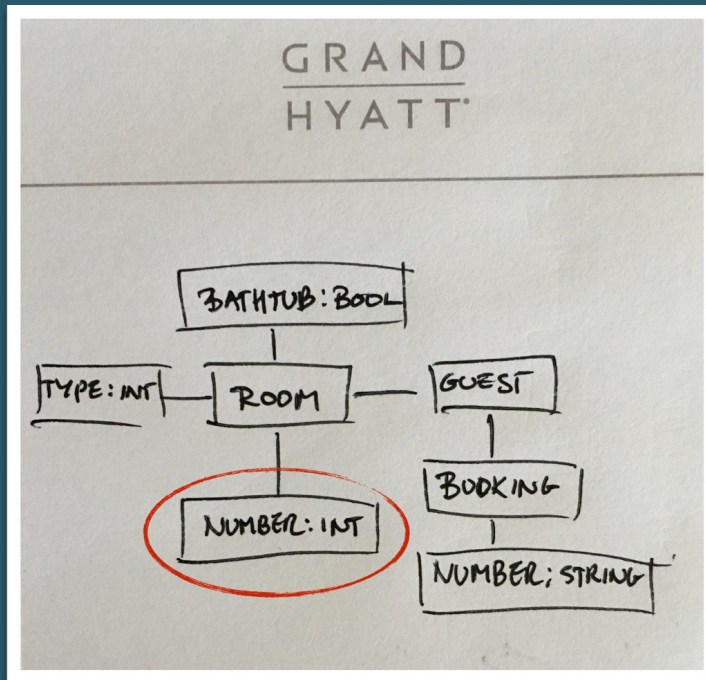 GRAND
HYATT
BATHTUB: BOOL
TYPE: INT
ROOM
GUEST
BOOKING
NUMBER: INT
NUMBER; STRING